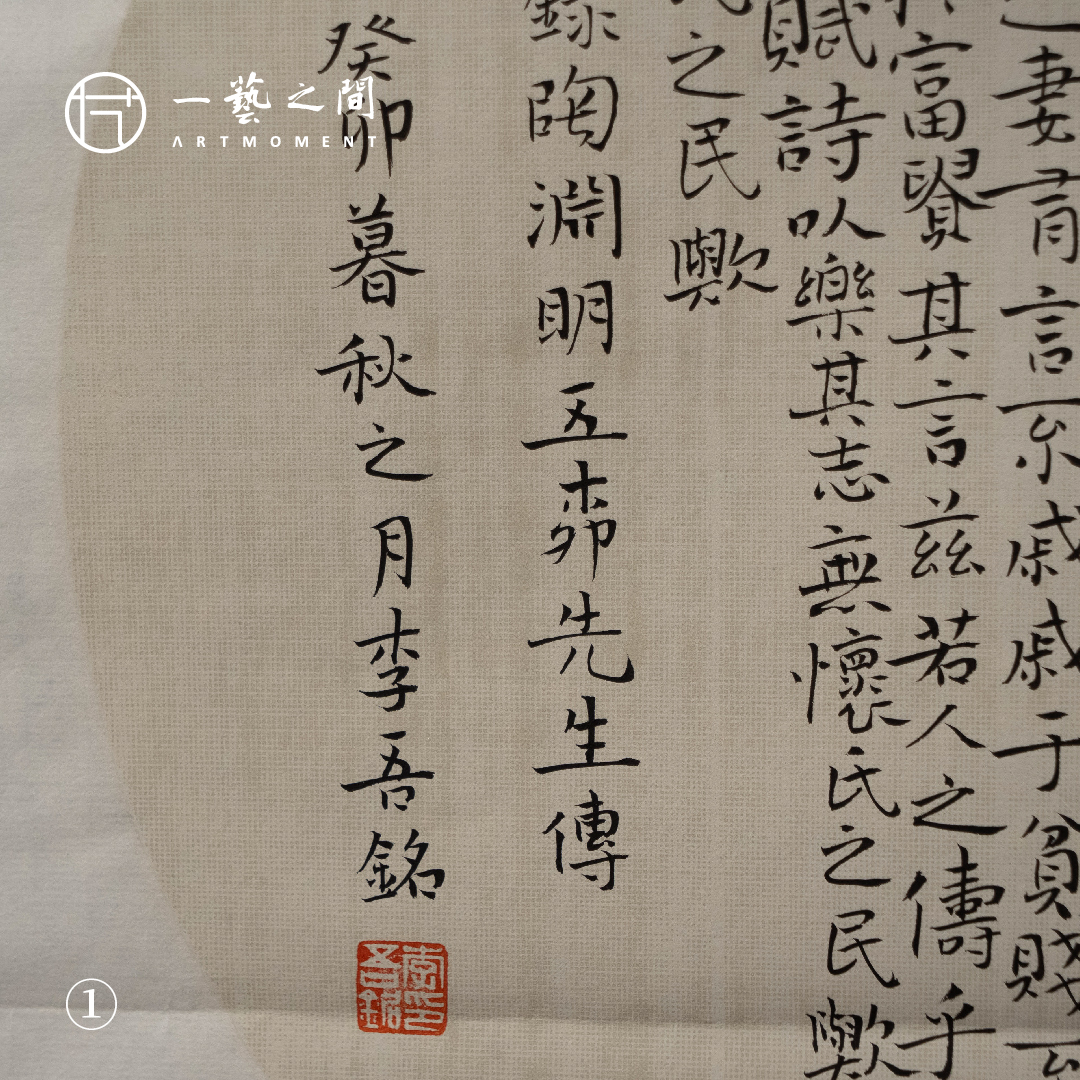 之妻有言不戚戚于貧賤不
富賢其言茲若人之儔乎
賦詩以樂其志無懷氏之民歟
氏之民歟
錄陶淵明五柳先生傳
癸卯暮秋之月李吾銘
李印
吾銘
一藝之間
ARTMOMENT
①